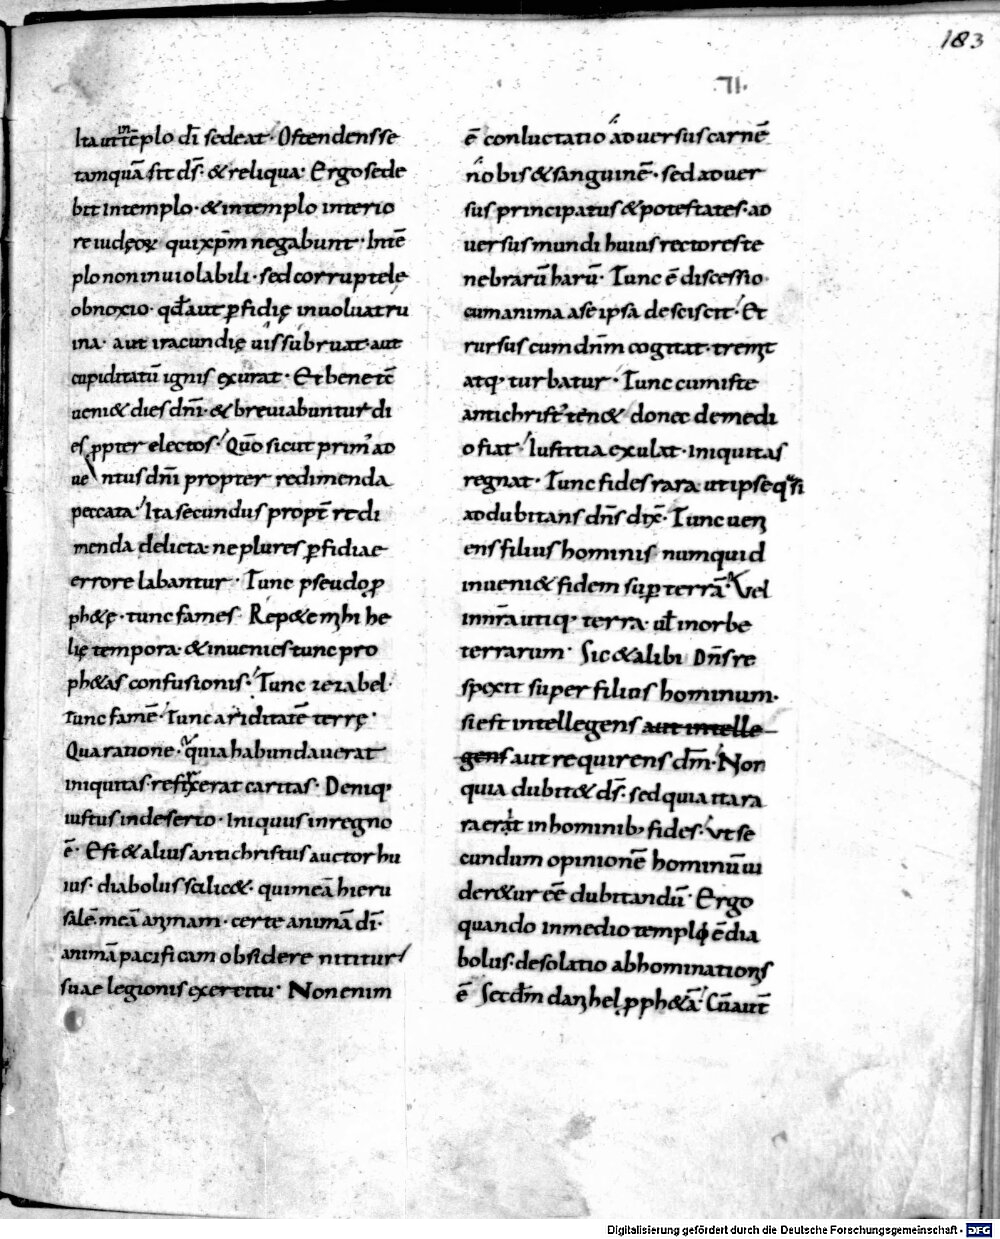 183
Ita ut in tēplo dī sedeat · Ostendens se
tamquā sit ds̄ · & reliqua · Ergo sede
bit Intemplo · & intemplo interio
re iudęoꝝ qui xp̄m negabunt · Intē
plo non inuiolabili · sed corruptelę
obnoxio · qđ aut ꝑfidię inuoluat ru
ina · aut iracundię uis subruat · aut
cupiditatū ignis exurat · Et bene tc̄
ueni& dies dn̄i · & breuiabuntur di
es ꝓpter electos · Quō sicut primꝰ ad
uentus dn̄i propter redimenda
peccata · Ita secundus propt̄ redi
menda delicta ne plures ꝑfidiae
errore labantur · Tunc pseudoꝓ
ph&ę · tunc fames · Rep&e mihi he
lię tempora · & inuenies tunc pro
ph&as confusionis · Tunc iezabel
tunc famē · Tunc ariditatē terrę ·
Qua ratione · quia habundauerat
iniquitas refrixerat caritas · Deniqꝫ
iustus indeserto · Iniquus inregno
ē · Est & alius antichristus auctor hu
ius · diabolus scilic& · qui meā hieru
salē · meā animam · certe animā dī ·
animā pacificam obsidere nititur
suae legionis exercitu · Non enim
ē conluctatio aduersus carnē
nobis & sanguinē · sed aduer
sus principatus & potestates · ad
uersus mundi huius rectores te
nebrarū harū · Tunc ē discessio
cum anima ase ipsa desciscit · Et
rursus cum dn̄m cogitat · tremit
atqꝫ turbatur · Tunc cum iste
antichristꝰ ten& donec demedi
o fiat · Iustitia exulat · iniquitas
regnat · Tunc fides rara ut ipse quasi
addubitans dn̄s dix̄ · Tunc ueni
ens filius hominis numquid
inueni& fidem suꝑ terrā · Vel
innr̄a utiqꝫ terra · ut̄ inorbe
terrarum · Sic & alibi Dn̄s re
spexit super filios hominum ·
si est intellegens aut intelle
gens aut requirens dm̄ · Non
quia dubit& ds̄ · sed quia ita ra
ra erat in hominibꝫ fides · Vt se
cundum opinionē hominū ui
der&ur eē dubitandū · Ergo
quando inmedio templo ē dia
bolus · desolatio abhominationis
ē Scdm̄ danihel ꝓph&ā · Cū aut̄
Digitalisierung gefördert durch die Deutsche Forschungsgemeinschaft - DFG